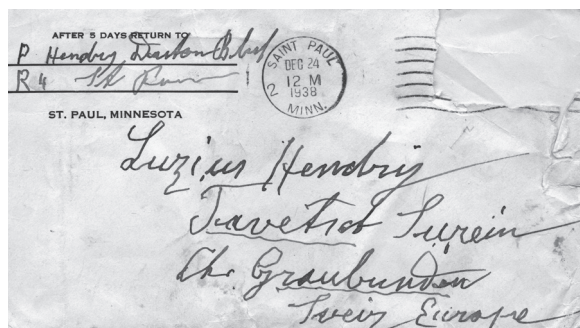 AFTER 5 DAYS RETURN TO
P Hendry
R 4 St
ST. PAUL, MINNESOTA
SAINT PAUL
DEC 24
12 M
1938
2
MINN.
Luzius Hendry
Tavetsch Surein
Graubunden
Sveiz Europe